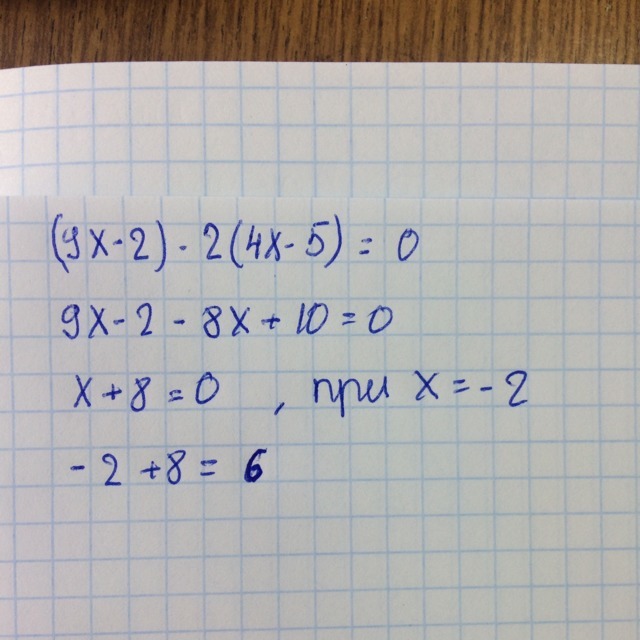 (9x-2)-2(4x-5)=0
9x-2-8x+10=0
x+8=0 , при x=-2
-2+8=6